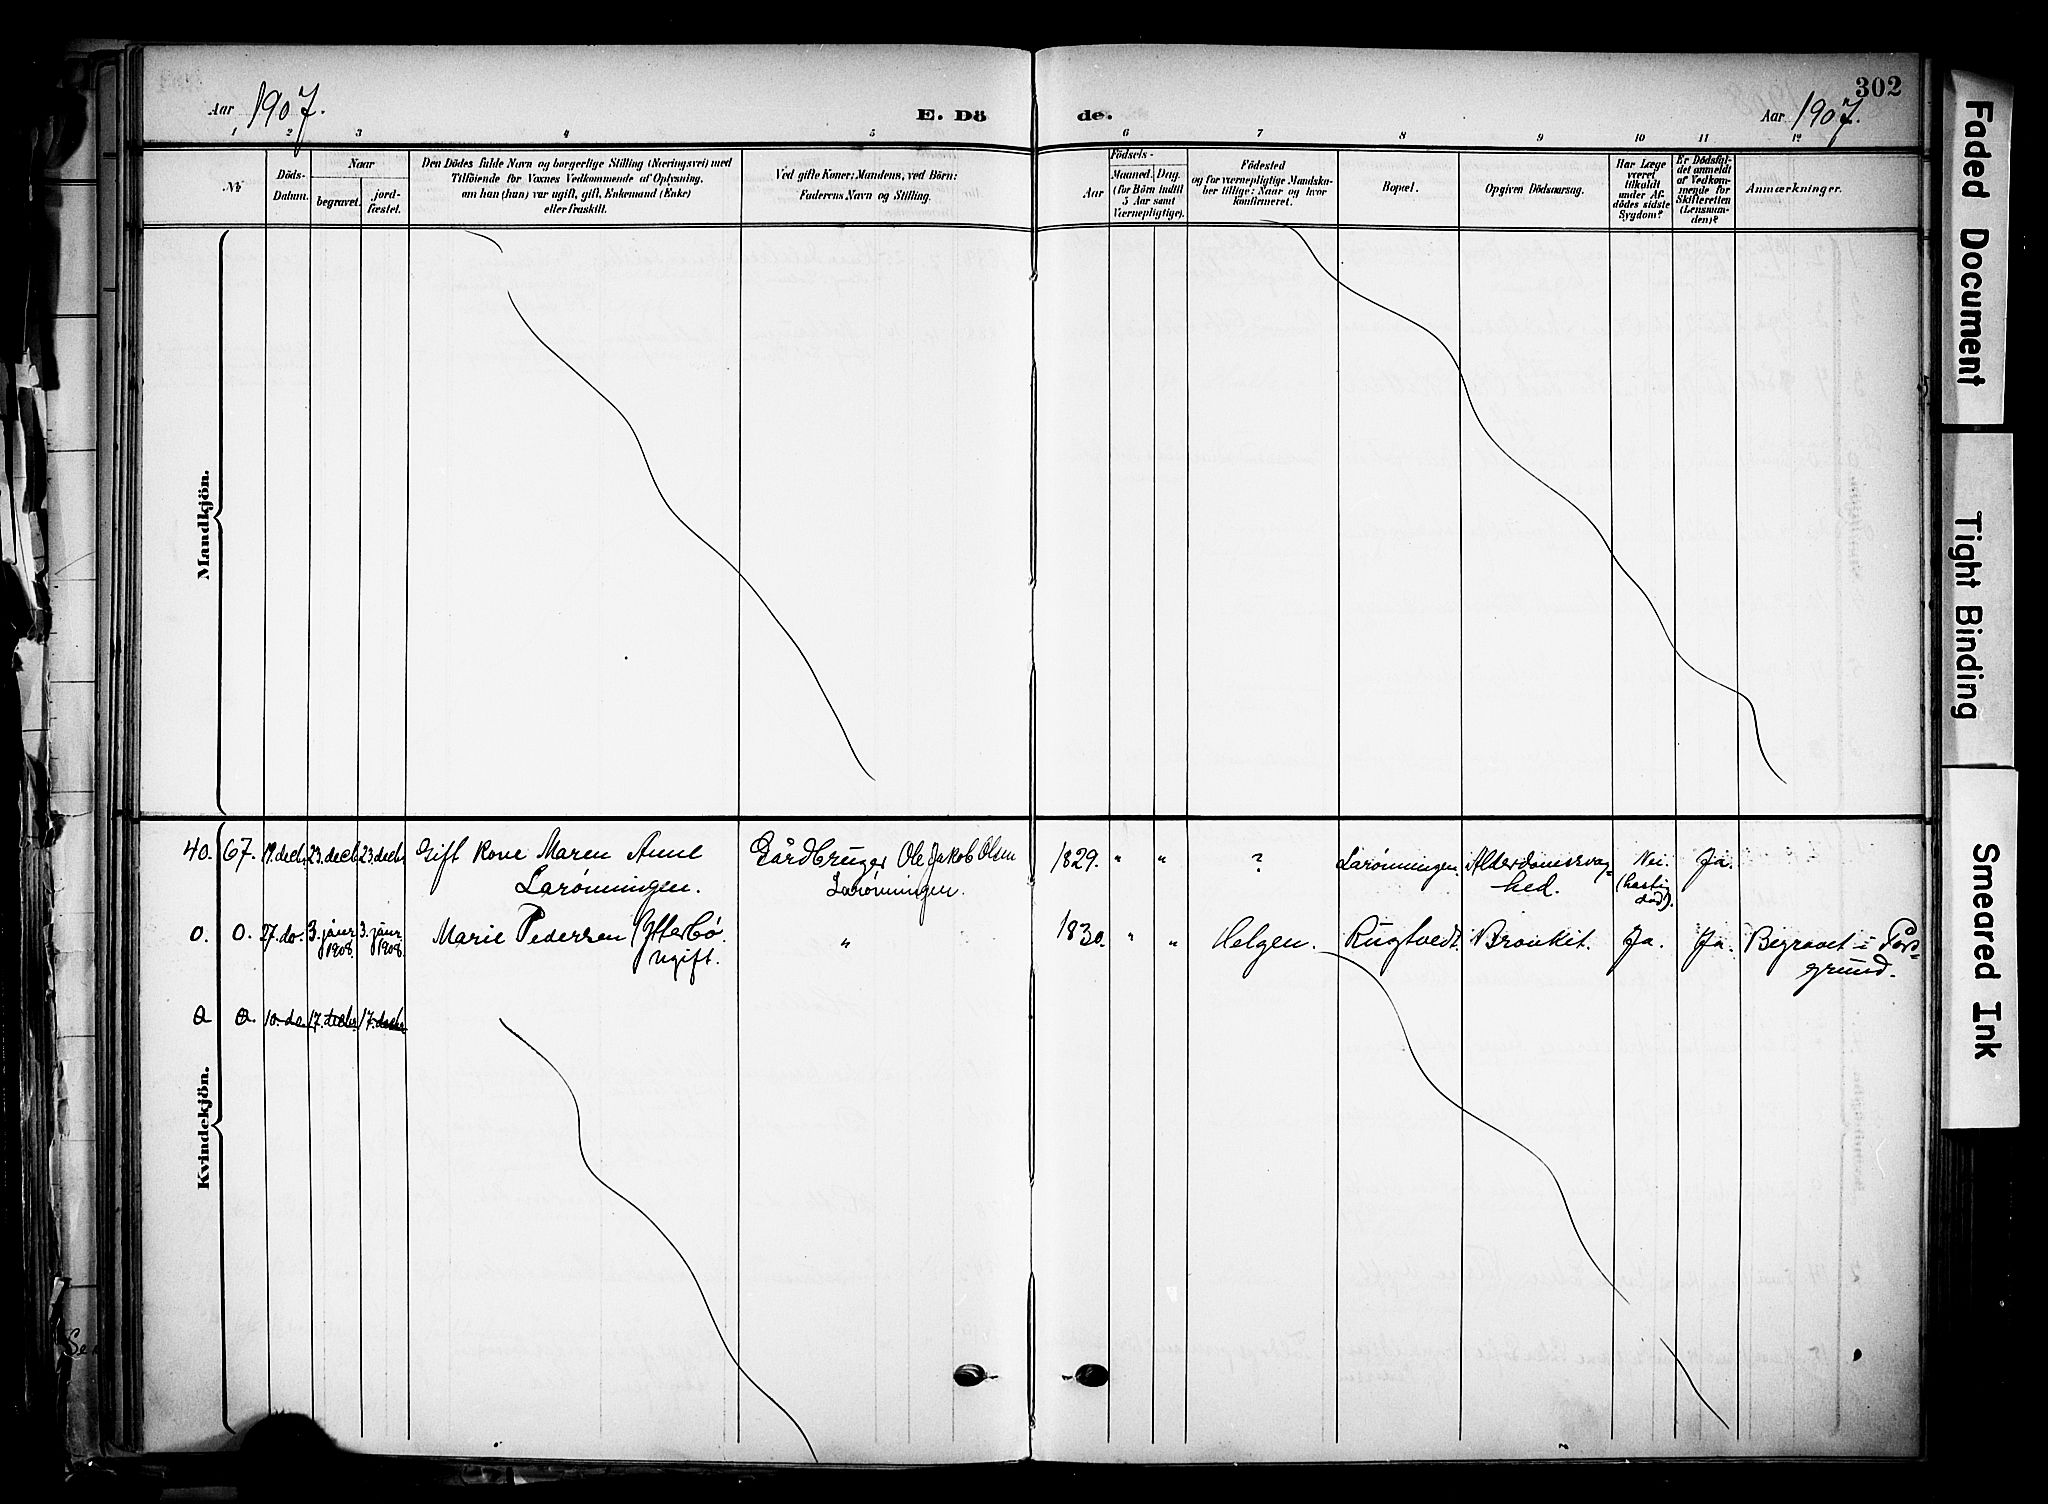 302
Aar 1907.
E. Dö
de.
Aar 1907.
1 2 3 4 5 6 7 8 9 10 11 12
No
Döds-
Datum.
Naar
begravet.
jord-
fæstet.
Den Dödes fulde Navn og borgerlige Stilling (Næringsvei) med
Tilföiende for Voxnes Vedkommende af Oplysning,
om han (hun) var ugift, gift, Enkemand (Enke)
eller fraskilt.
Ved gifte Koner: Mandens, ved Börn:
Faderens Navn og Stilling.
Födsels-
Aar
Maaned.
Dag.
(for Börn indtil
5 Aar samt
Værnepligtige).
Födested
og for værnepligtige Mandska-
ber tillige: Naar og hvor
konfirmeret.
Bopæl.
Opgiven Dödsaarsag.
Har Læge
været
tilkaldt
under Af-
dödes sidste
Sygdom?
Er Dödsfal-
det anmeldt
af Vedkom-
mende for
Skifteretten
(Lensman-
den)?
Anmærkninger.
Mandkjön.
Kvindekjön.
40. 67. 19. decbr. 23. decb. 23. decbr. Gift Kone Maren Anne Gårdbruger Ole Jakob Olsen 1829. " " ? Larönningen. Alderdomssvag= Nei. Ja.
Larönningen. Larönningen. hed. (hastig
död).
0. 0. 27. do. 3. januar 3. januar Marie Pedersen Ytterbö. " 1830. " " Helgen. Rugtvedt. Bronkit. Ja. Ja. Begravet i Pors=
1908. 1908. ugift. grund.
0 0. 10. do. 17. decbr. 17. decbr.
Faded Document
Tight Binding
Smeared Ink